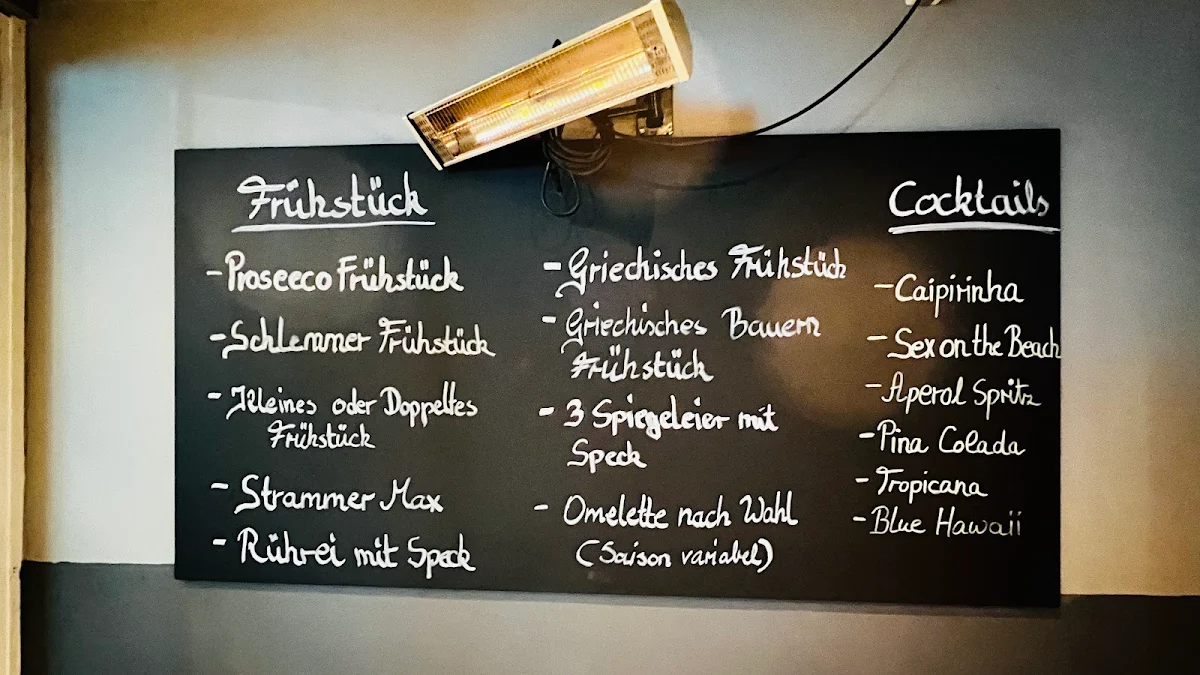 Frühstück
- Prosecco Frühstück
- Schlemmer Frühstück
- Kleines oder Doppeltes
Frühstück
- Strammer Max
- Rührei mit Speck
- Griechisches Frühstück
- Griechisches Bauern
Frühstück
- 3 Spiegeleier mit
Speck
- Omelette nach Wahl
(Saison variabel)
Cocktails
- Caipirinha
- Sex on the Beach
- Aperol Spritz
- Pina Colada
- Tropicana
- Blue Hawaii